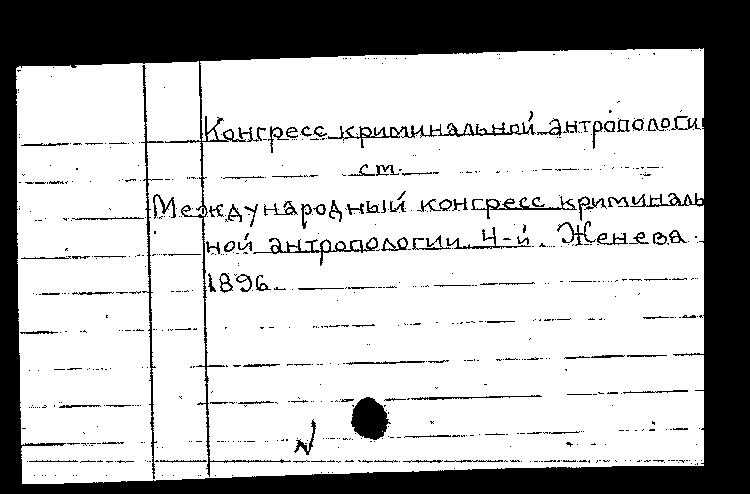 Конгресс криминальной антропологии
ст.
Международный конгресс криминаль
ной антропологии. 4-й. Женева.
1896.
N